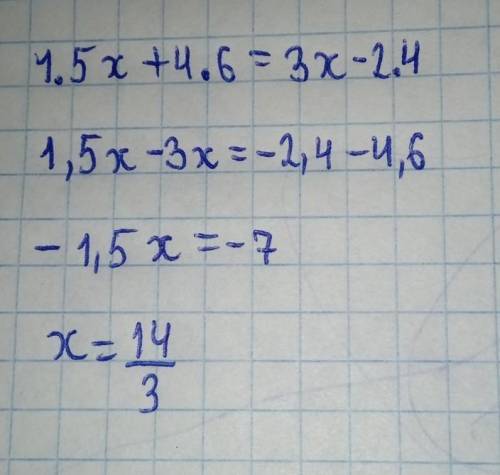 1.5x+4.6=3x-2.4
1,5x-3x=-2,4-4,6
-1,5x=-7
x=14/3